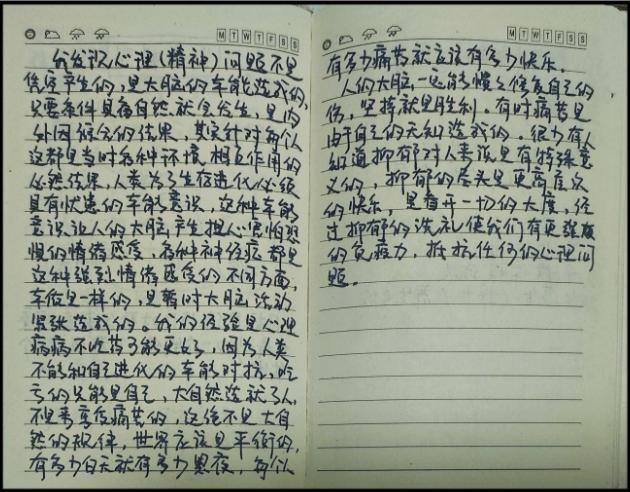 M T W T F S S
我发现心理(精神)问题不是
凭空产生的,是大脑的本能造成的,
只要条件具备自然就会发生,是内
外因综合的结果,其实针对每个人
这都是当时各种环境相互作用的
必然结果,人类为了生存进化必须
具有忧患的本能意识,这种本能
意识让人的大脑产生担心害怕恐
惧的情绪感受,各种神经症都是
这种强烈情绪感受的不同方面,
本质是一样的,是暂时大脑活动
紧张造成的。我的经验是心理
疾病不吃药才能更好,因为人类
不能和自己进化的本能对抗,吃
亏的只能是自己,大自然造就了人
不是来享受痛苦的,这绝不是大自
然的规律,世界应该是平衡的,
有多少白天就有多少黑夜,每个人
M T W T F S S
有多少痛苦就应该有多少快乐。
人的大脑一定能慢慢修复自己的
伤,坚持就是胜利。有时痛苦是
由于自己的无知造成的。很少有人
知道抑郁对人类说是有特殊意
义的,抑郁的尽头是更高层次
的快乐,是看开一切的大度,经
过抑郁的洗礼使我们有更强大
的免疫力,抵抗任何的心理问
题。